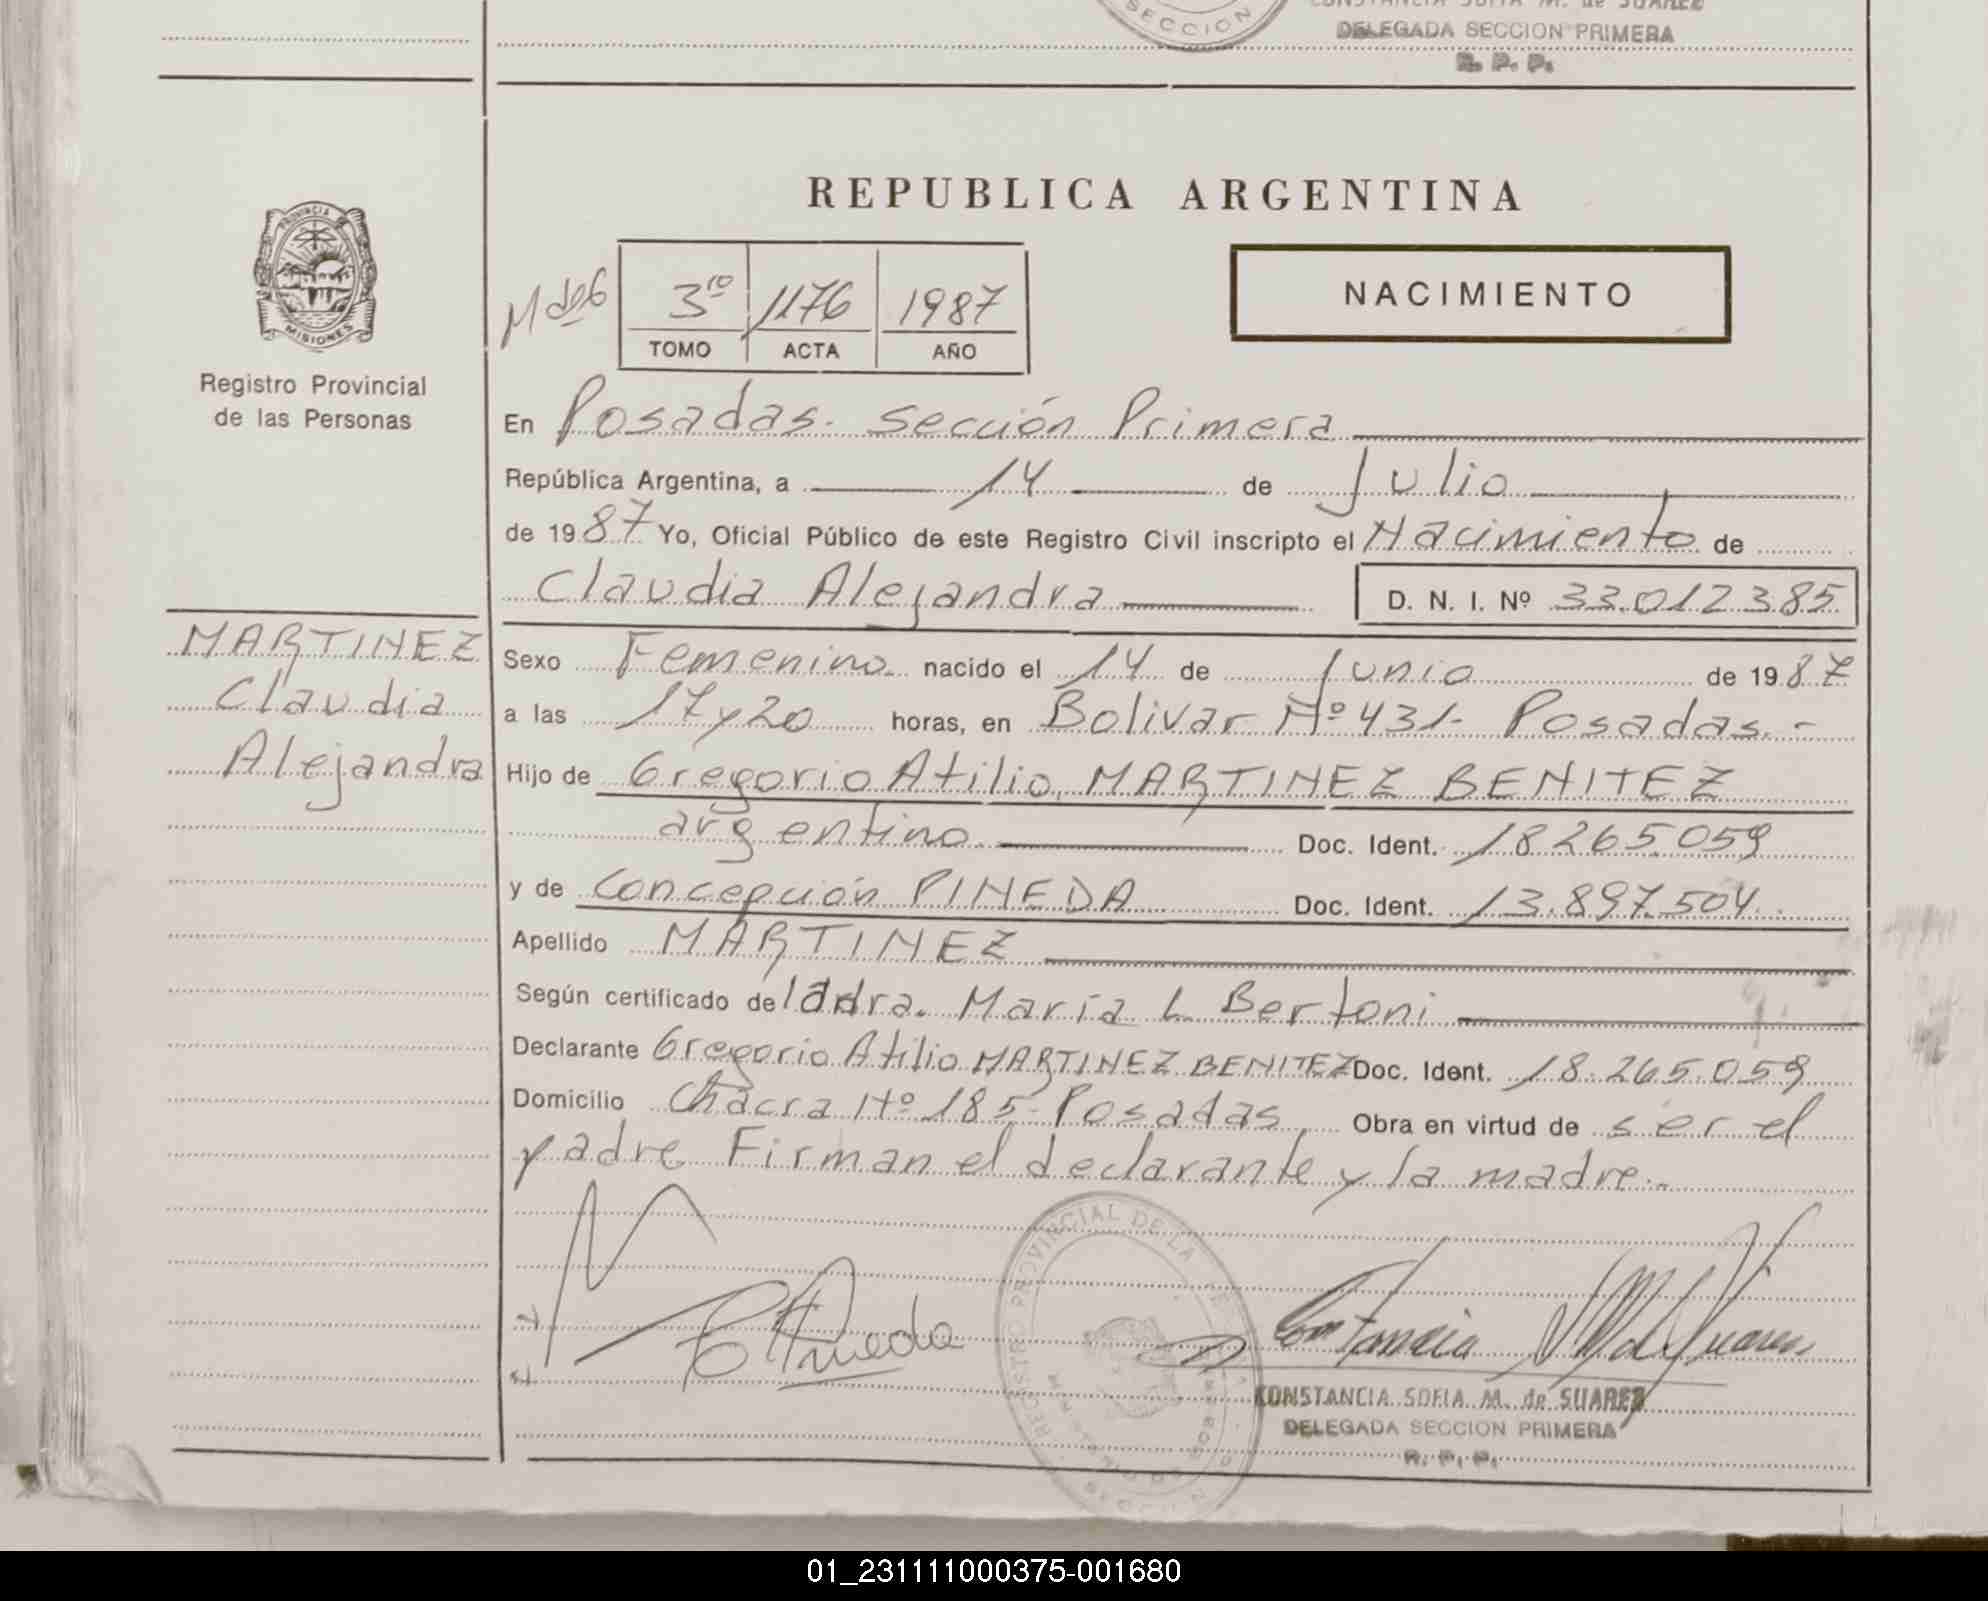 SECCION
CONSTANCIA SOFIA M. de SUAREZ
DELEGADA SECCION PRIMERA
R. P. P.
REPUBLICA ARGENTINA
PROVINCIA
MISIONES
Registro Provincial
de las Personas
3ro 1176 1987
TOMO ACTA AÑO
NACIMIENTO
En Posadas. Sección Primera
República Argentina, a 14 de Julio
de 1987 Yo, Oficial Público de este Registro Civil inscripto el Nacimiento de
Claudia Alejandra D. N. I. Nº 33.012.385
MARTINEZ
Claudia
Alejandra
Sexo Femenino nacido el 14 de Junio de 1987
a las 17 y 20 horas, en Bolivar Nº 431- Posadas.-
Hijo de Gregorio Atilio MARTINEZ BENITEZ
argentino Doc. Ident. 18.265.059
y de Concepción PINEDA Doc. Ident. 13.897.504
Apellido MARTINEZ
Según certificado de la dra. María L. Bertoni
Declarante Gregorio Atilio MARTINEZ BENITEZ Doc. Ident. 18.265.059
Domicilio Chacra Nº 185- Posadas Obra en virtud de ser el
padre Firman el declarante y la madre.-
REGISTRO PROVINCIAL DE LA
CONSTANCIA SOFIA M. de SUAREZ
DELEGADA SECCION PRIMERA
R. P. P.
01_231111000375-001680